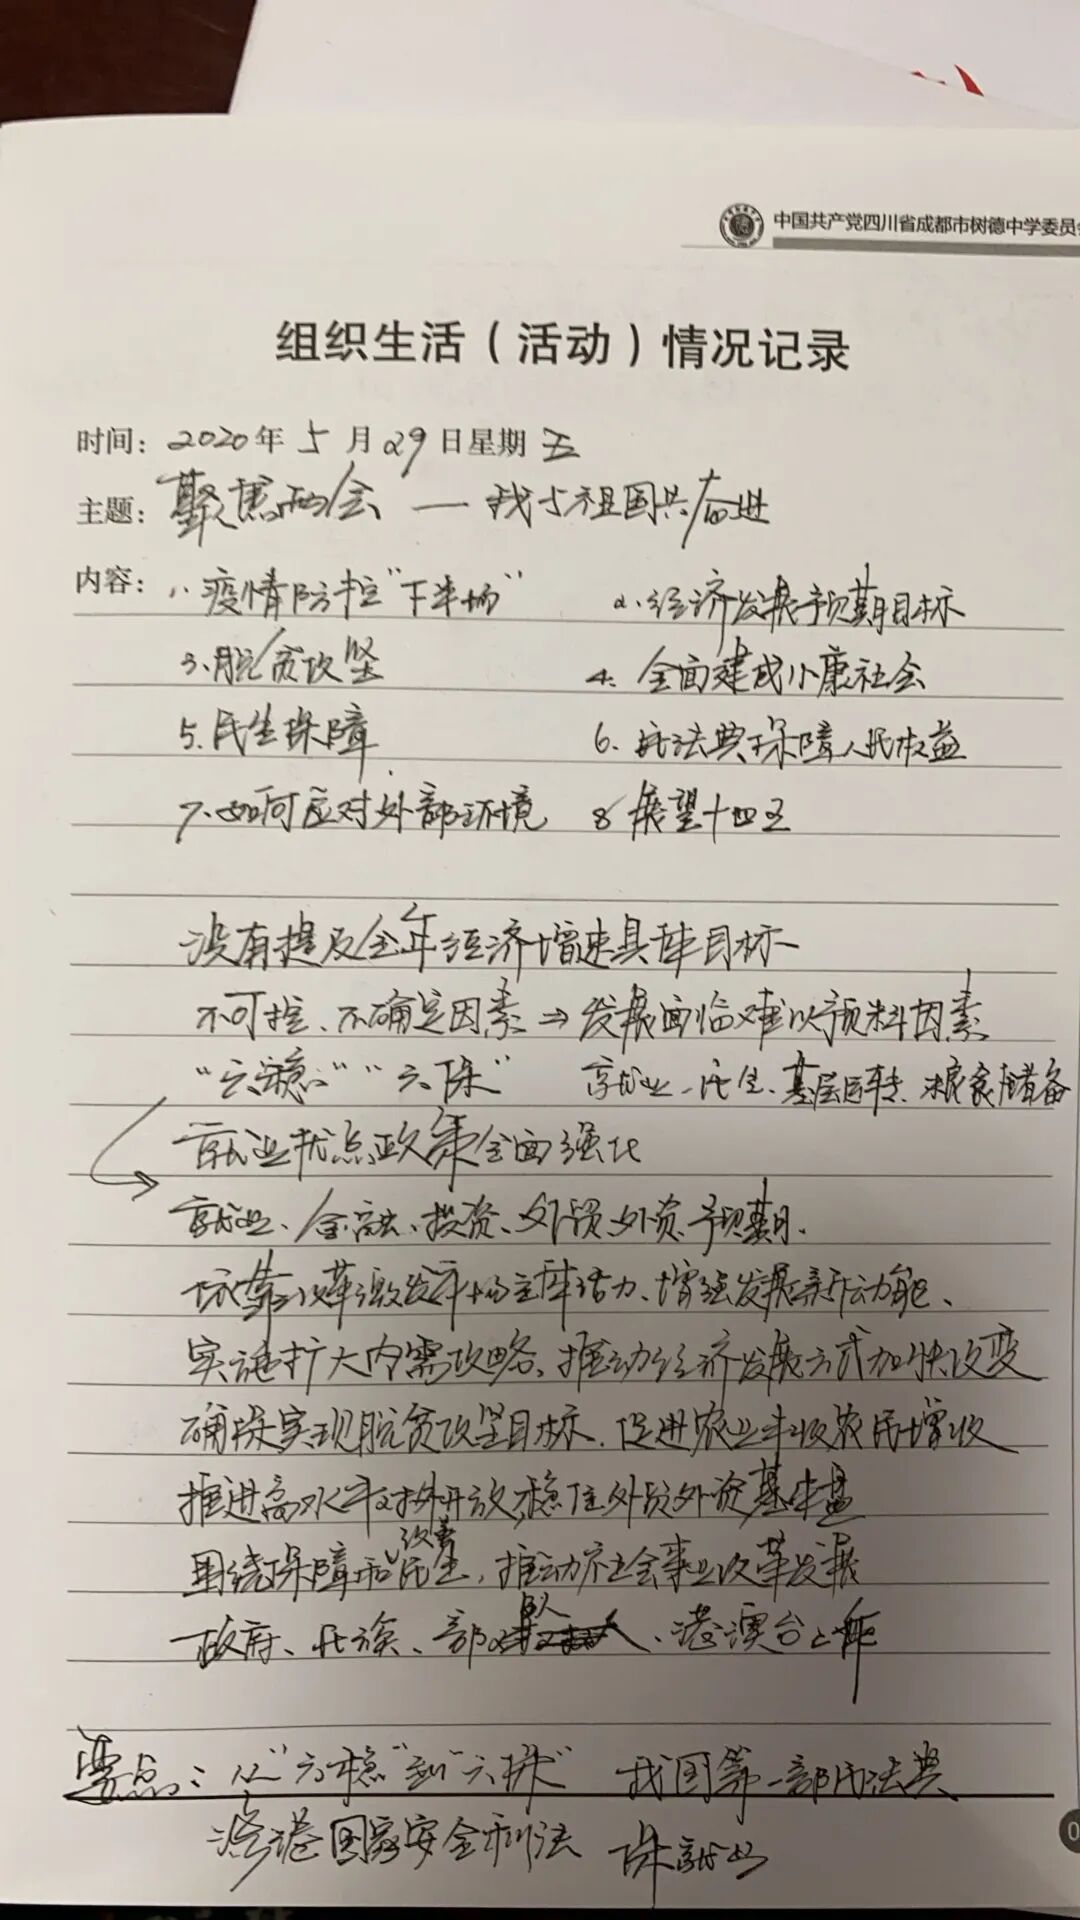 中国共产党四川省成都市树德中学委员会
组织生活（活动）情况记录
时间：2020年5月29日星期五
主题：聚焦两会—我与祖国共奋进
内容：1、疫情防控"下半场" 2、经济发展预期目标
3、脱贫攻坚 4、全面建成小康社会
5、民生保障 6、民法典保障人民权益
7、如何应对外部环境 8 展望十四五
没有提及全年经济增速具体目标
不可控、不确定因素⇒发展面临难以预料因素
"六稳""六保" 就业、民生、基层运转、粮食储备
就业优先政策全面强化
就业、金融、投资、外贸、外资、预期、
依靠改革激发市场主体活力、增强发展新动能、
实施扩大内需战略、推动经济发展方式加快改变
确保实现脱贫攻坚目标、促进农业丰收农民增收
推进高水平对外开放,稳住外贸外资基本盘
围绕保障和改善民生,推动社会事业改革发展
政府、民族、部队、港澳台
要点：从"六稳"到"六保" 我国第一部民法典
涉港国家安全利法 保就业
0